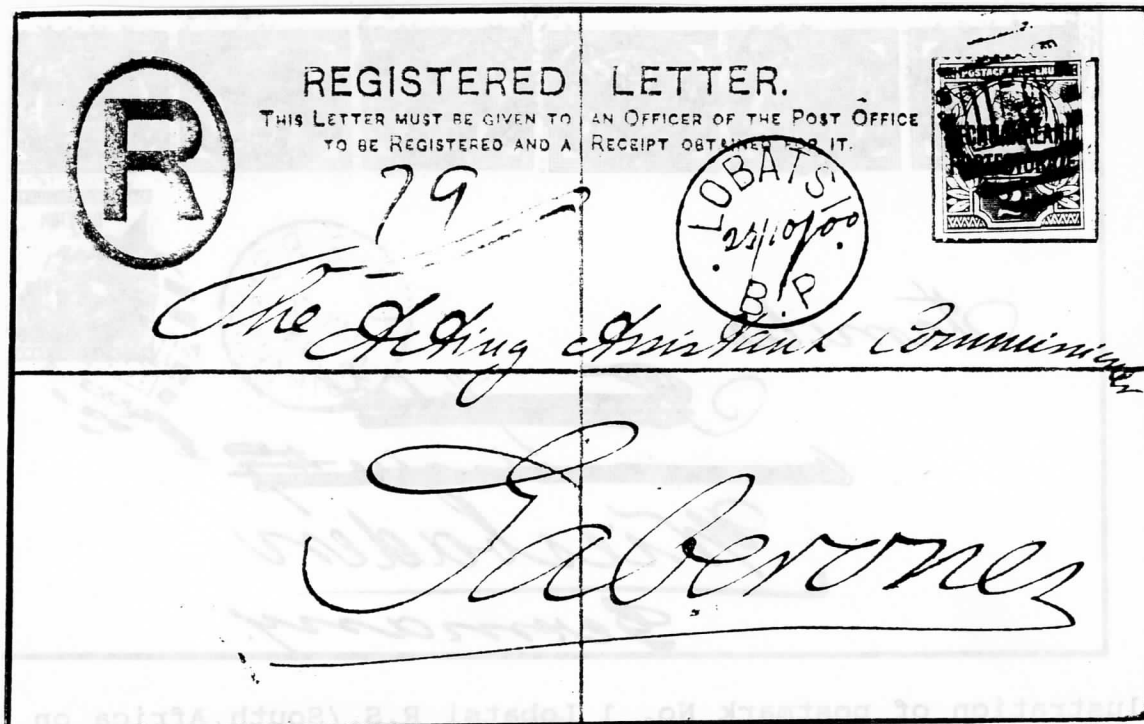 R
REGISTERED LETTER.
THIS LETTER MUST BE GIVEN TO AN OFFICER OF THE POST OFFICE
TO BE REGISTERED AND A RECEIPT OBTAINED FOR IT.
POSTAGE & REVENUE
BECHUANALAND
PROTECTORATE
79
LOBATSI
25/10/00
B.P
The Acting Assistant Commissioner
Gaberones